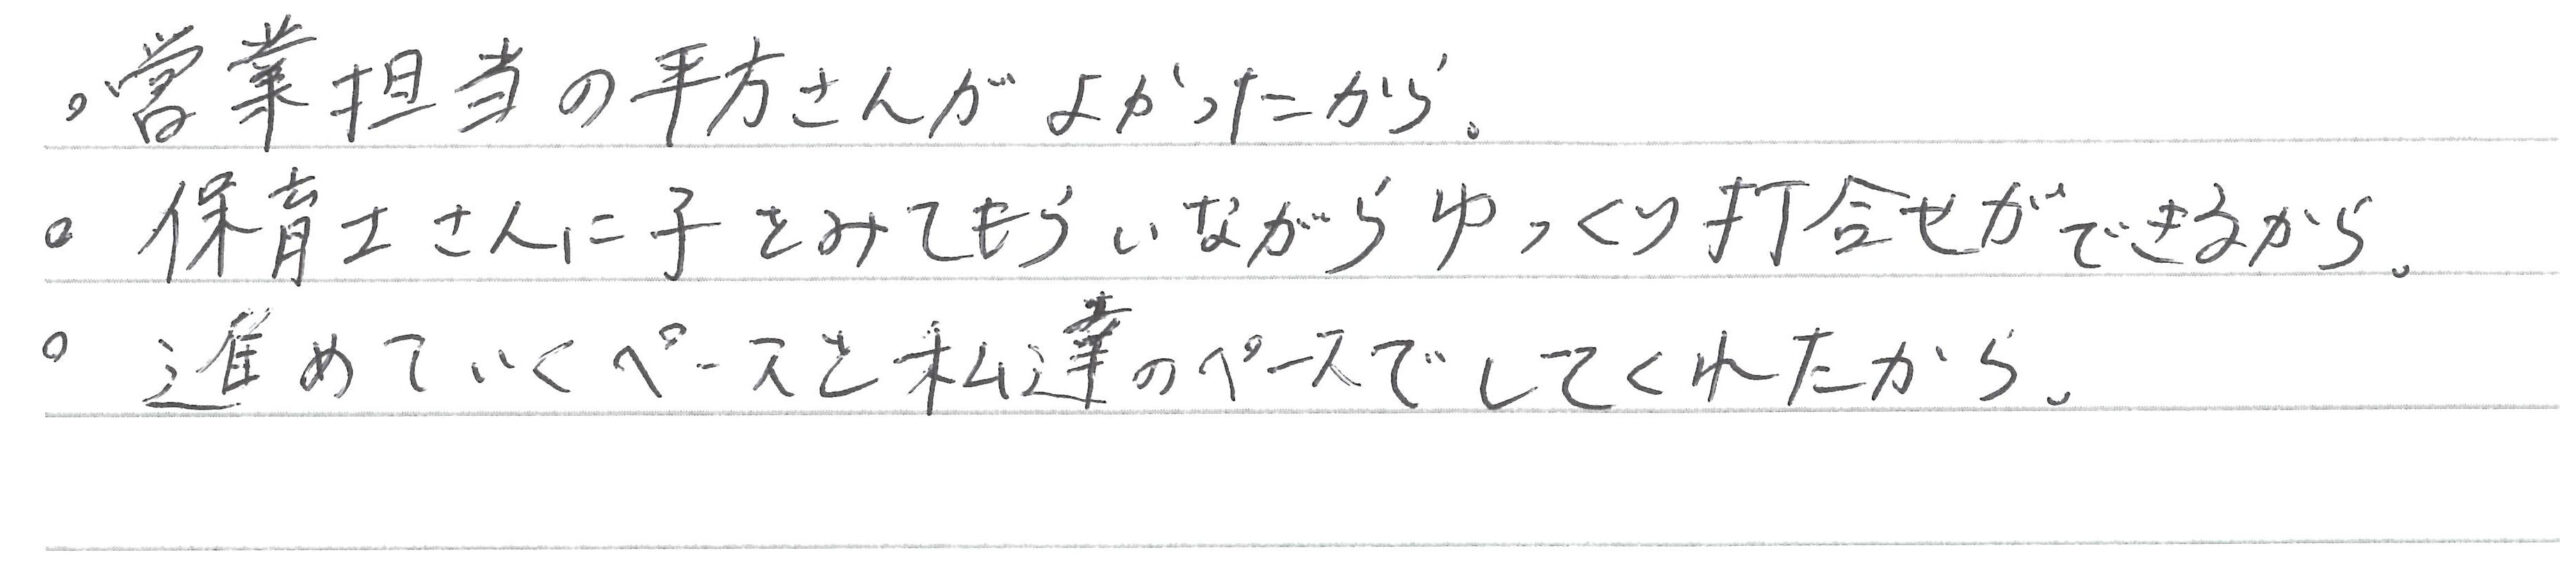 。営業担当の平方さんがよかったから。
。保育士さんに子をみてもらいながらゆっくり打合せができるから。
。進めていくペースを私達のペースでしてくれたから。